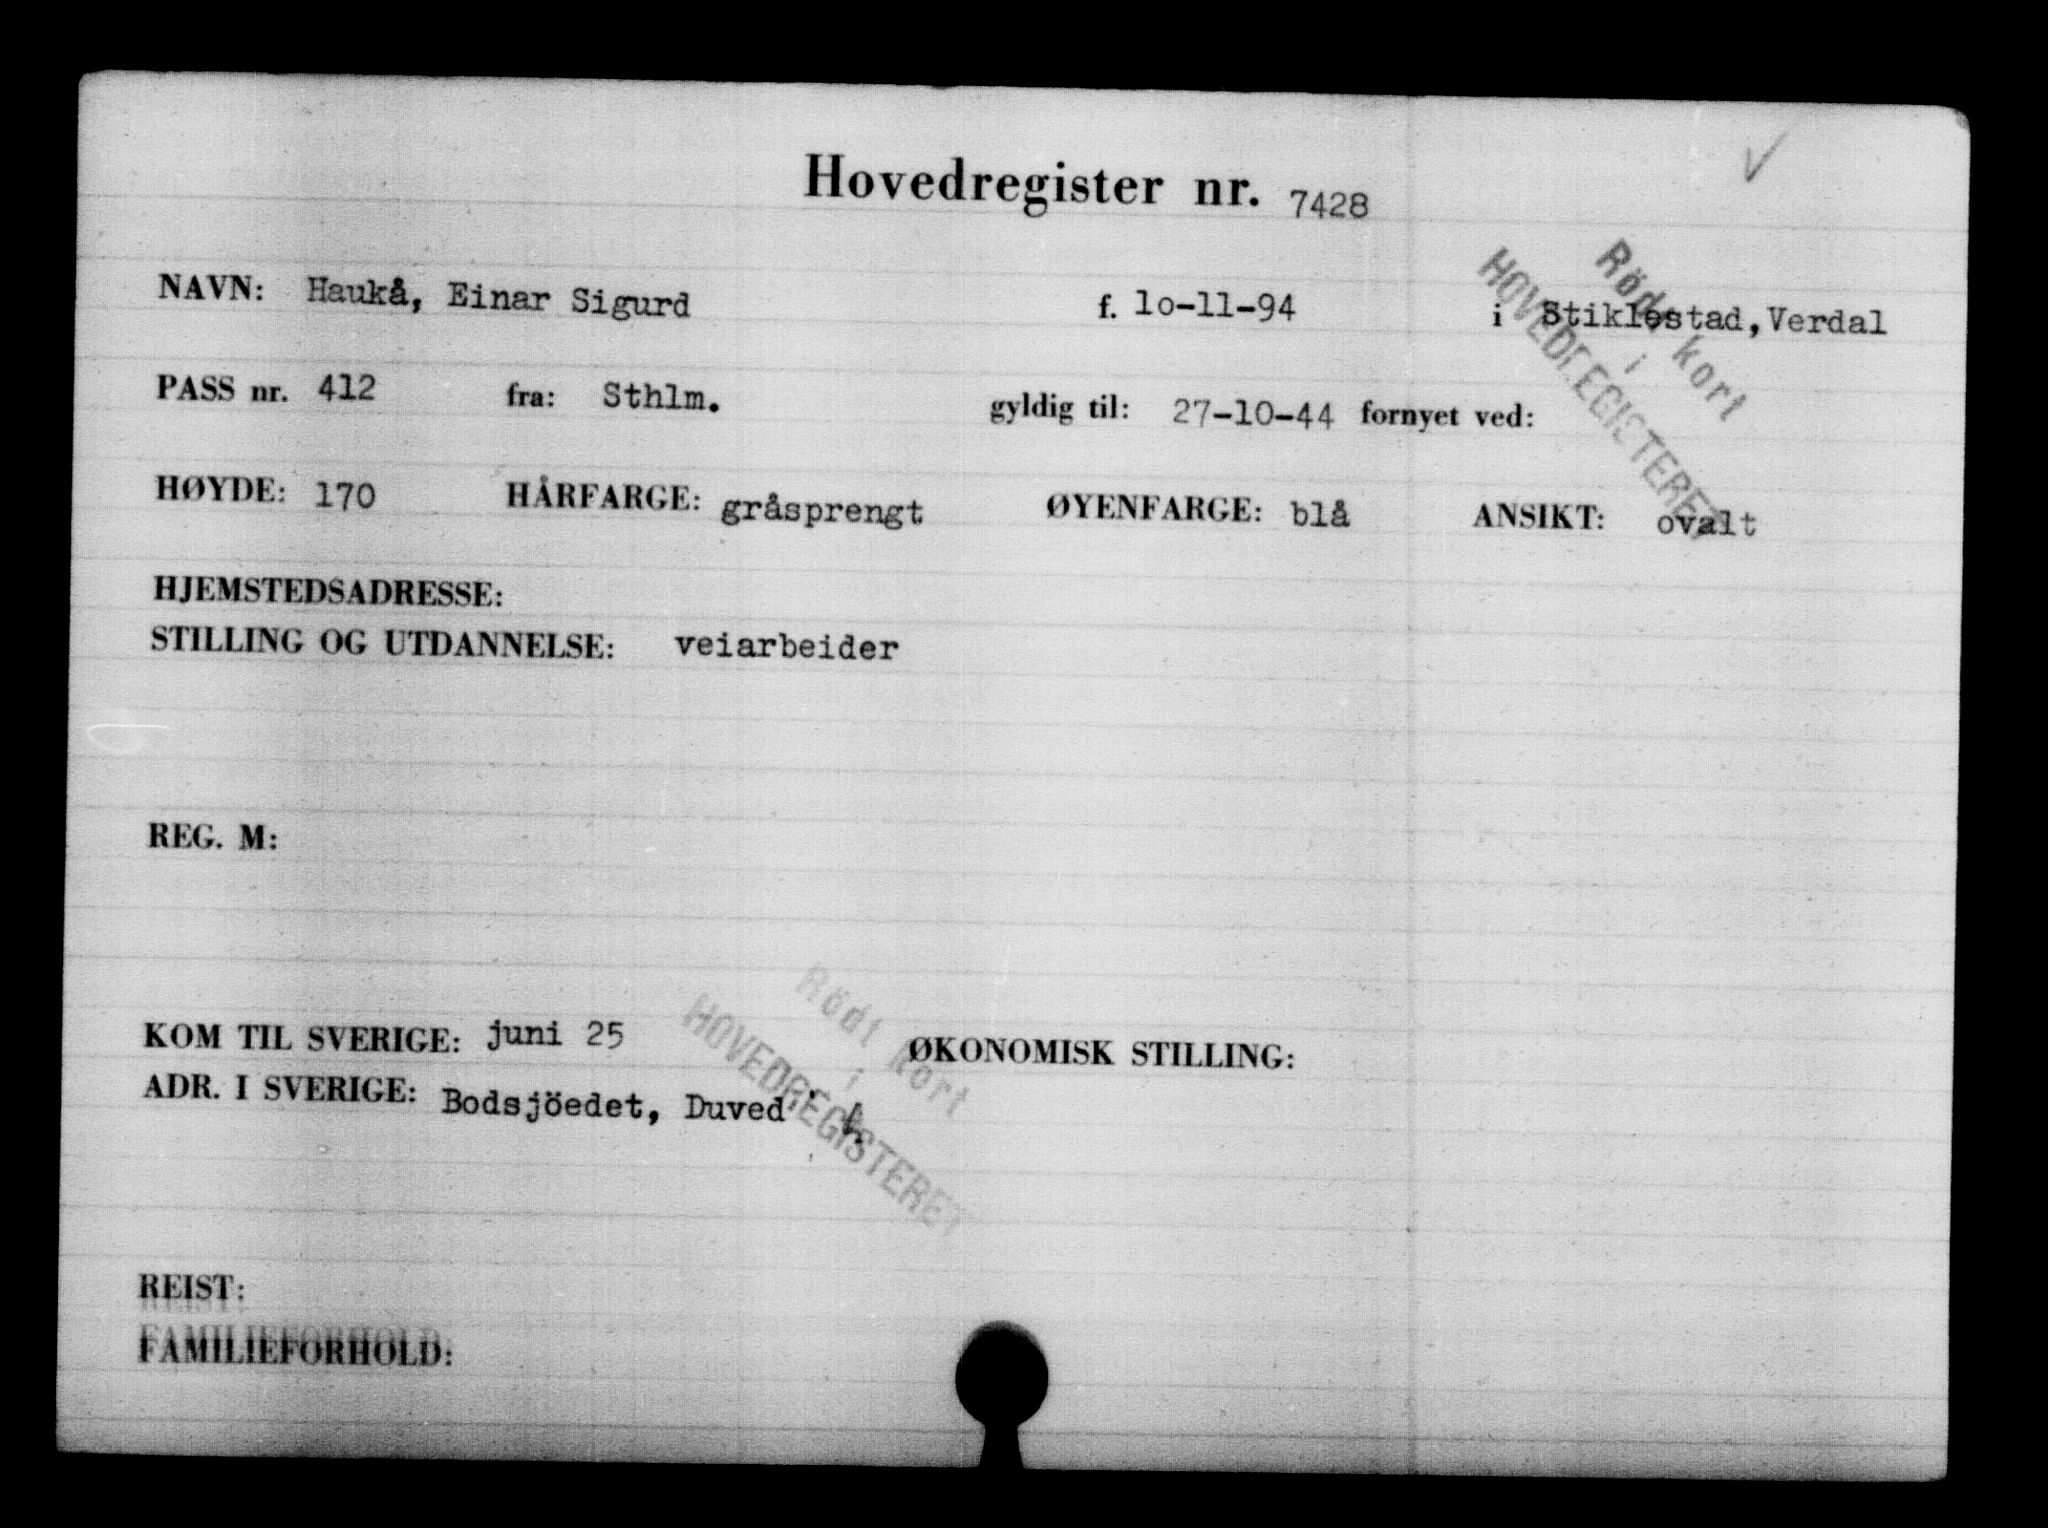 Hovedregister nr. 7428
NAVN: Haukå, Einar Sigurd f. lo-11-94 i Stiklestad, Verdal
PASS nr. 412 fra: Sthlm. gyldig til: 27-10-44 fornyet ved:
HØYDE: 170 HÅRFARGE: gråsprengt ØYENFARGE: blå ANSIKT: ovalt
Rödt kort
i
HOVEDREGISTERET
HJEMSTEDSADRESSE:
STILLING OG UTDANNELSE: veiarbeider
REG. M:
KOM TIL SVERIGE: juni 25 ØKONOMISK STILLING:
ADR. I SVERIGE: Bodsjöedet, Duved
Rödt kort
i
HOVEDREGISTERET
REIST:
FAMILIEFORHOLD: